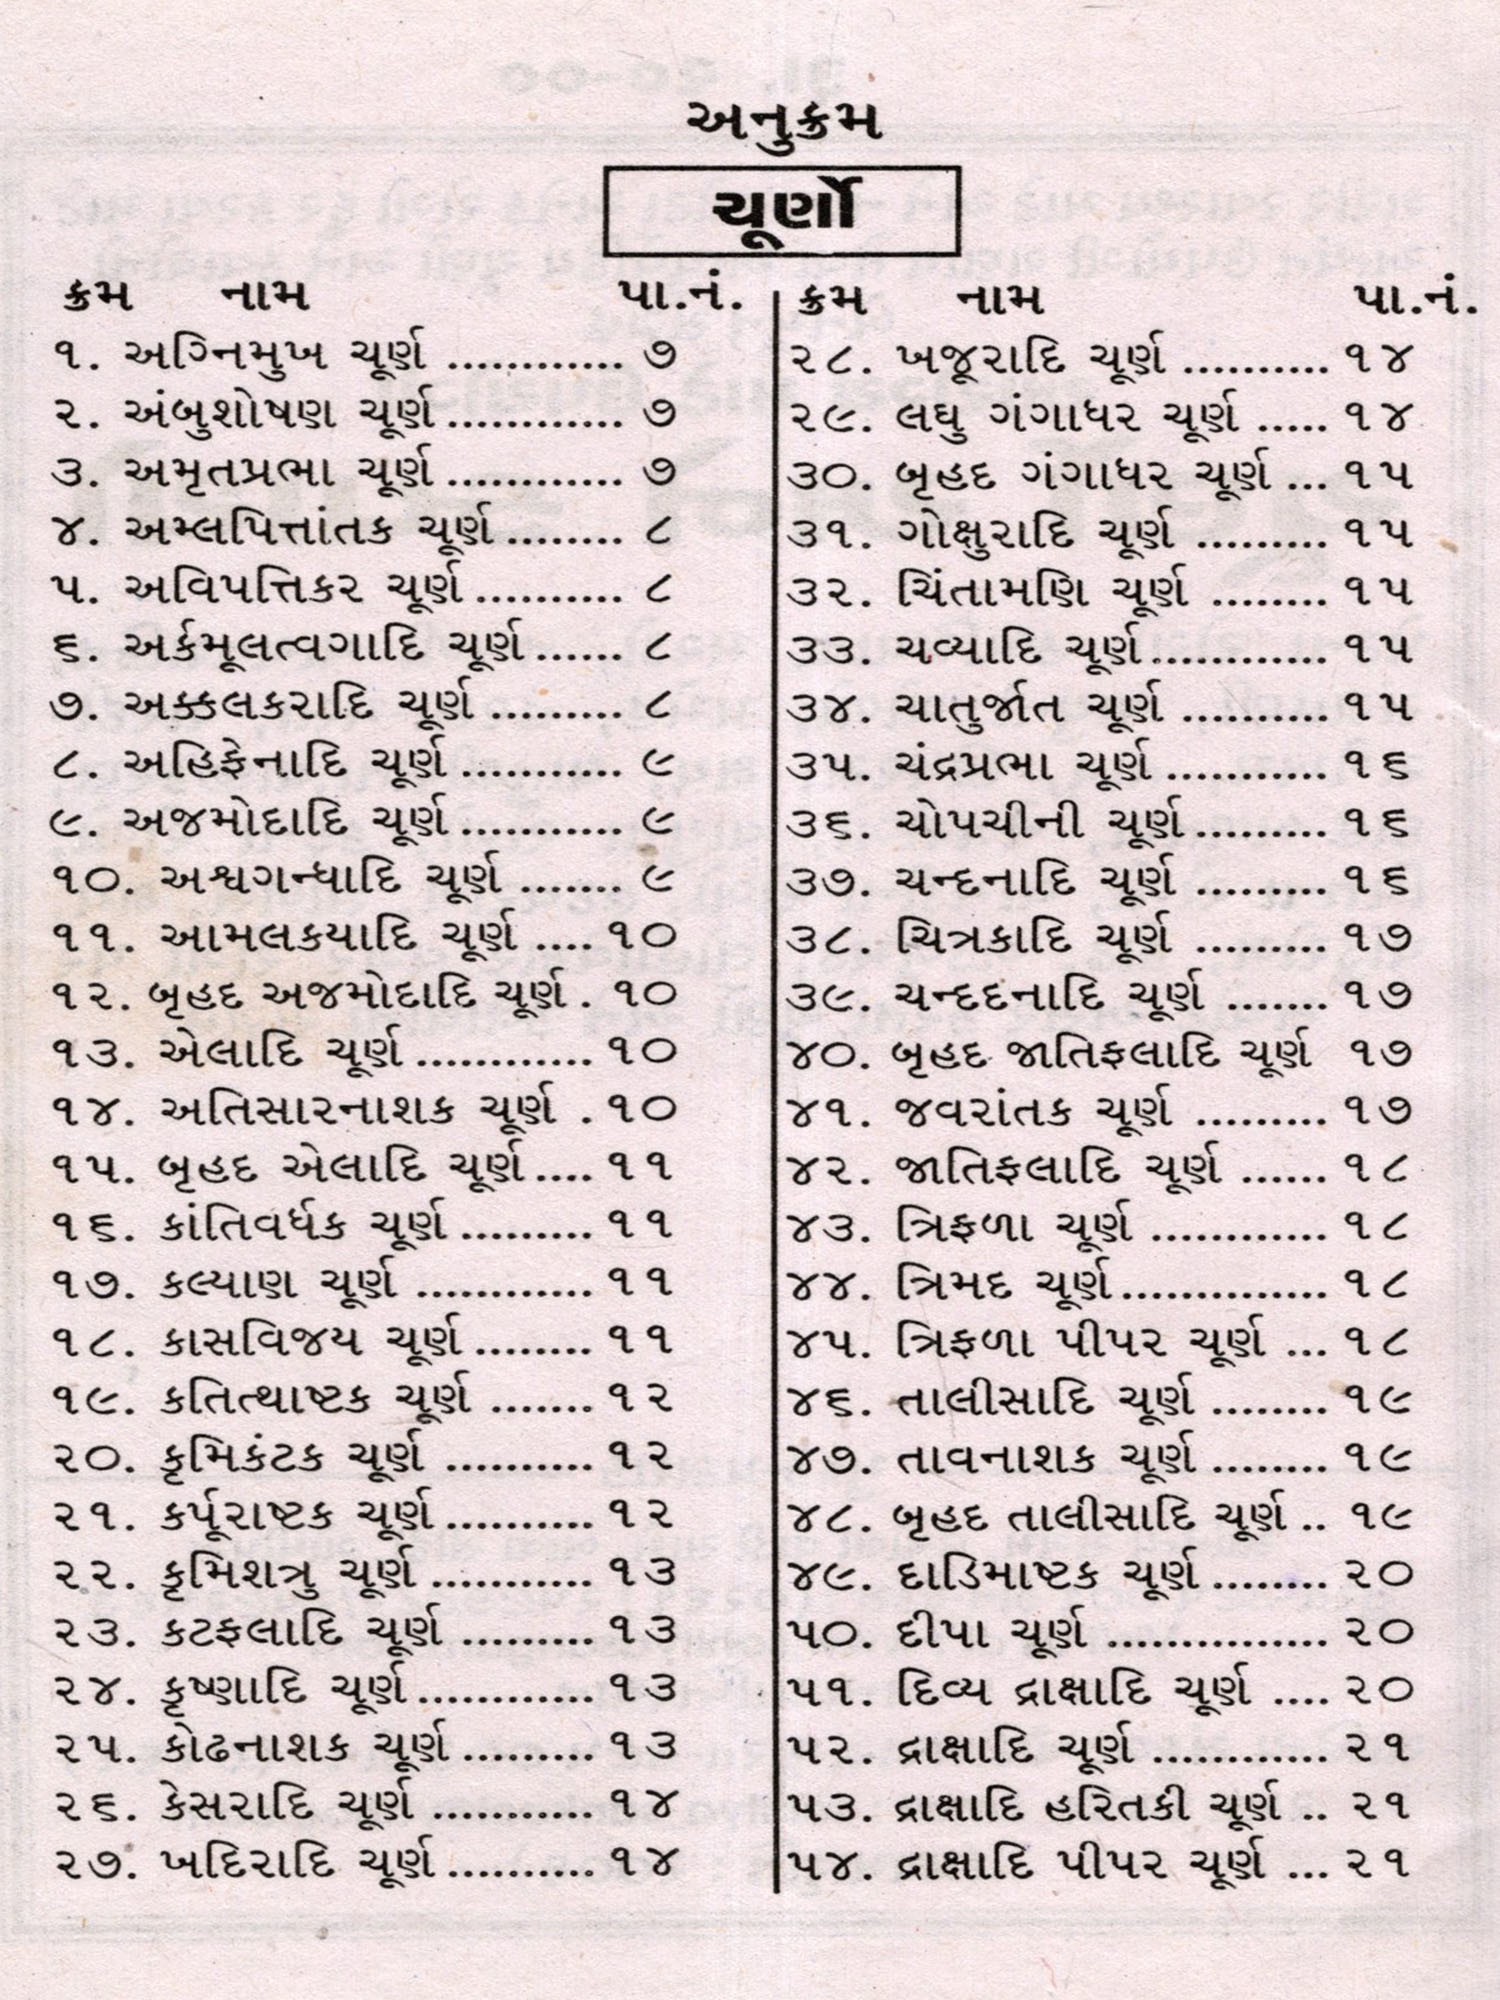 અનુક્રમ
ચૂર્ણો
ક્રમ નામ પા.નં.
૧. અગ્નિમુખ ચૂર્ણ ............ ૭
૨. અંબુશોષણ ચૂર્ણ ............ ૭
૩. અમૃતપ્રભા ચૂર્ણ ............ ૭
૪. અમ્લપિત્તાંતક ચૂર્ણ ........ ૮
૫. અવિપત્તિકર ચૂર્ણ .......... ૮
૬. અર્કમૂલત્વગાદિ ચૂર્ણ ...... ૮
૭. અક્કલકરાદિ ચૂર્ણ ......... ૮
૮. અહિફેનાદિ ચૂર્ણ ........... ૯
૯. અજમોદાદિ ચૂર્ણ ........... ૯
૧૦. અશ્વગન્ધાદિ ચૂર્ણ ....... ૯
૧૧. આમલકયાદિ ચૂર્ણ .... ૧૦
૧૨. બૃહદ અજમોદાદિ ચૂર્ણ . ૧૦
૧૩. એલાદિ ચૂર્ણ ............ ૧૦
૧૪. અતિસારનાશક ચૂર્ણ . ૧૦
૧૫. બૃહદ એલાદિ ચૂર્ણ .... ૧૧
૧૬. કાંતિવર્ધક ચૂર્ણ ......... ૧૧
૧૭. કલ્યાણ ચૂર્ણ ............ ૧૧
૧૮. કાસવિજય ચૂર્ણ ........ ૧૧
૧૯. કતિત્થાષ્ટક ચૂર્ણ ....... ૧૨
૨૦. કૃમિકંટક ચૂર્ણ .......... ૧૨
૨૧. કર્પૂરાષ્ટક ચૂર્ણ .......... ૧૨
૨૨. કૃમિશત્રુ ચૂર્ણ ........... ૧૩
૨૩. કટફલાદિ ચૂર્ણ ......... ૧૩
૨૪. કૃષ્ણાદિ ચૂર્ણ ............ ૧૩
૨૫. કોઢનાશક ચૂર્ણ ......... ૧૩
૨૬. કેસરાદિ ચૂર્ણ ........... ૧૪
૨૭. ખદિરાદિ ચૂર્ણ .......... ૧૪
ક્રમ નામ પા.નં.
૨૮. ખજૂરાદિ ચૂર્ણ .......... ૧૪
૨૯. લઘુ ગંગાધર ચૂર્ણ ..... ૧૪
૩૦. બૃહદ ગંગાધર ચૂર્ણ ... ૧૫
૩૧. ગોક્ષુરાદિ ચૂર્ણ ......... ૧૫
૩૨. ચિંતામણિ ચૂર્ણ ........ ૧૫
૩૩. ચવ્યાદિ ચૂર્ણ ............ ૧૫
૩૪. ચાતુર્જાત ચૂર્ણ .......... ૧૫
૩૫. ચંદ્રપ્રભા ચૂર્ણ ........... ૧૬
૩૬. ચોપચીની ચૂર્ણ ......... ૧૬
૩૭. ચન્દનાદિ ચૂર્ણ ......... ૧૬
૩૮. ચિત્રકાદિ ચૂર્ણ ......... ૧૭
૩૯. ચન્દદનાદિ ચૂર્ણ ....... ૧૭
૪૦. બૃહદ જાતિફલાદિ ચૂર્ણ ૧૭
૪૧. જવરાંતક ચૂર્ણ ......... ૧૭
૪૨. જાતિફલાદિ ચૂર્ણ ...... ૧૮
૪૩. ત્રિફળા ચૂર્ણ ............ ૧૮
૪૪. ત્રિમદ ચૂર્ણ .............. ૧૮
૪૫. ત્રિફળા પીપર ચૂર્ણ ... ૧૮
૪૬. તાલીસાદિ ચૂર્ણ ........ ૧૯
૪૭. તાવનાશક ચૂર્ણ ........ ૧૯
૪૮. બૃહદ તાલીસાદિ ચૂર્ણ .. ૧૯
૪૯. દાડિમાષ્ટક ચૂર્ણ ........ ૨૦
૫૦. દીપા ચૂર્ણ ............... ૨૦
૫૧. દિવ્ય દ્રાક્ષાદિ ચૂર્ણ .... ૨૦
૫૨. દ્રાક્ષાદિ ચૂર્ણ ............ ૨૧
૫૩. દ્રાક્ષાદિ હરિતકી ચૂર્ણ .. ૨૧
૫૪. દ્રાક્ષાદિ પીપર ચૂર્ણ ... ૨૧